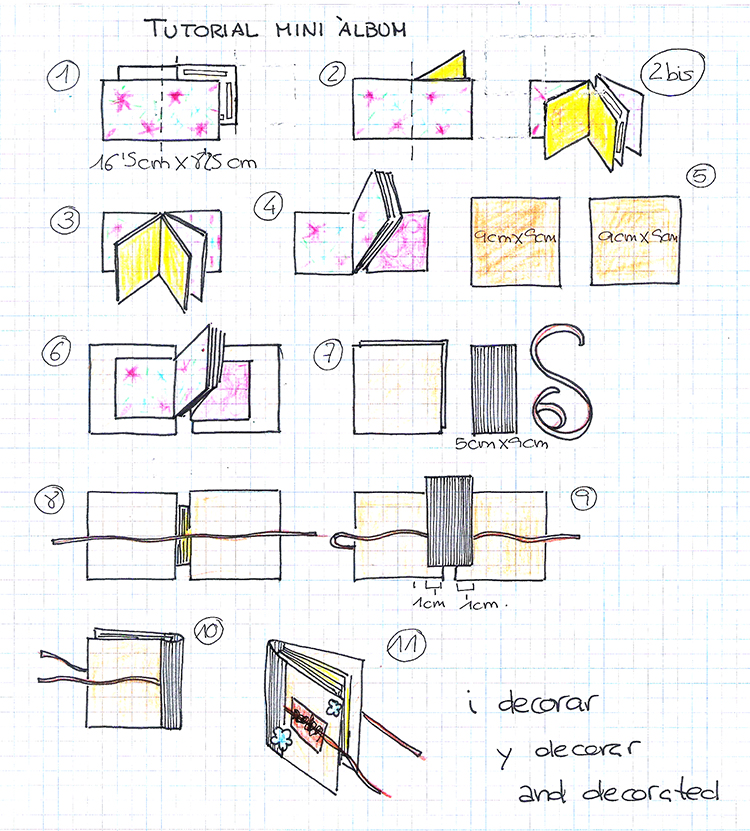 TUTORIAL MINI ÀLBUM
1
2
2bis
16'5cm X 8'25 cm
3
4
5
9cm x 9cm
9cm x 9cm
6
7
5cm x 9cm
8
9
1cm 1cm.
10
11
i decorar
y decorar
and decorated